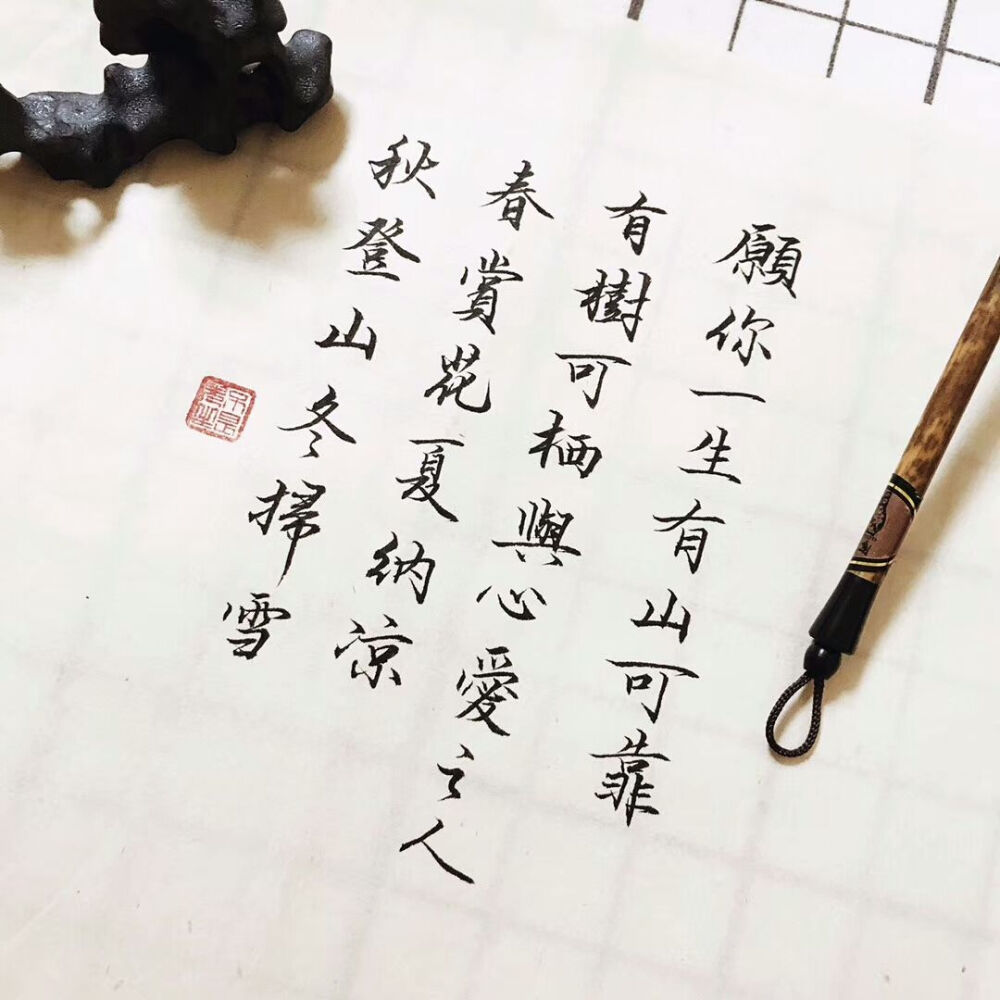 願你一生有山可靠
有樹可栖與心愛之人
春賞花夏納涼
秋登山冬掃雪